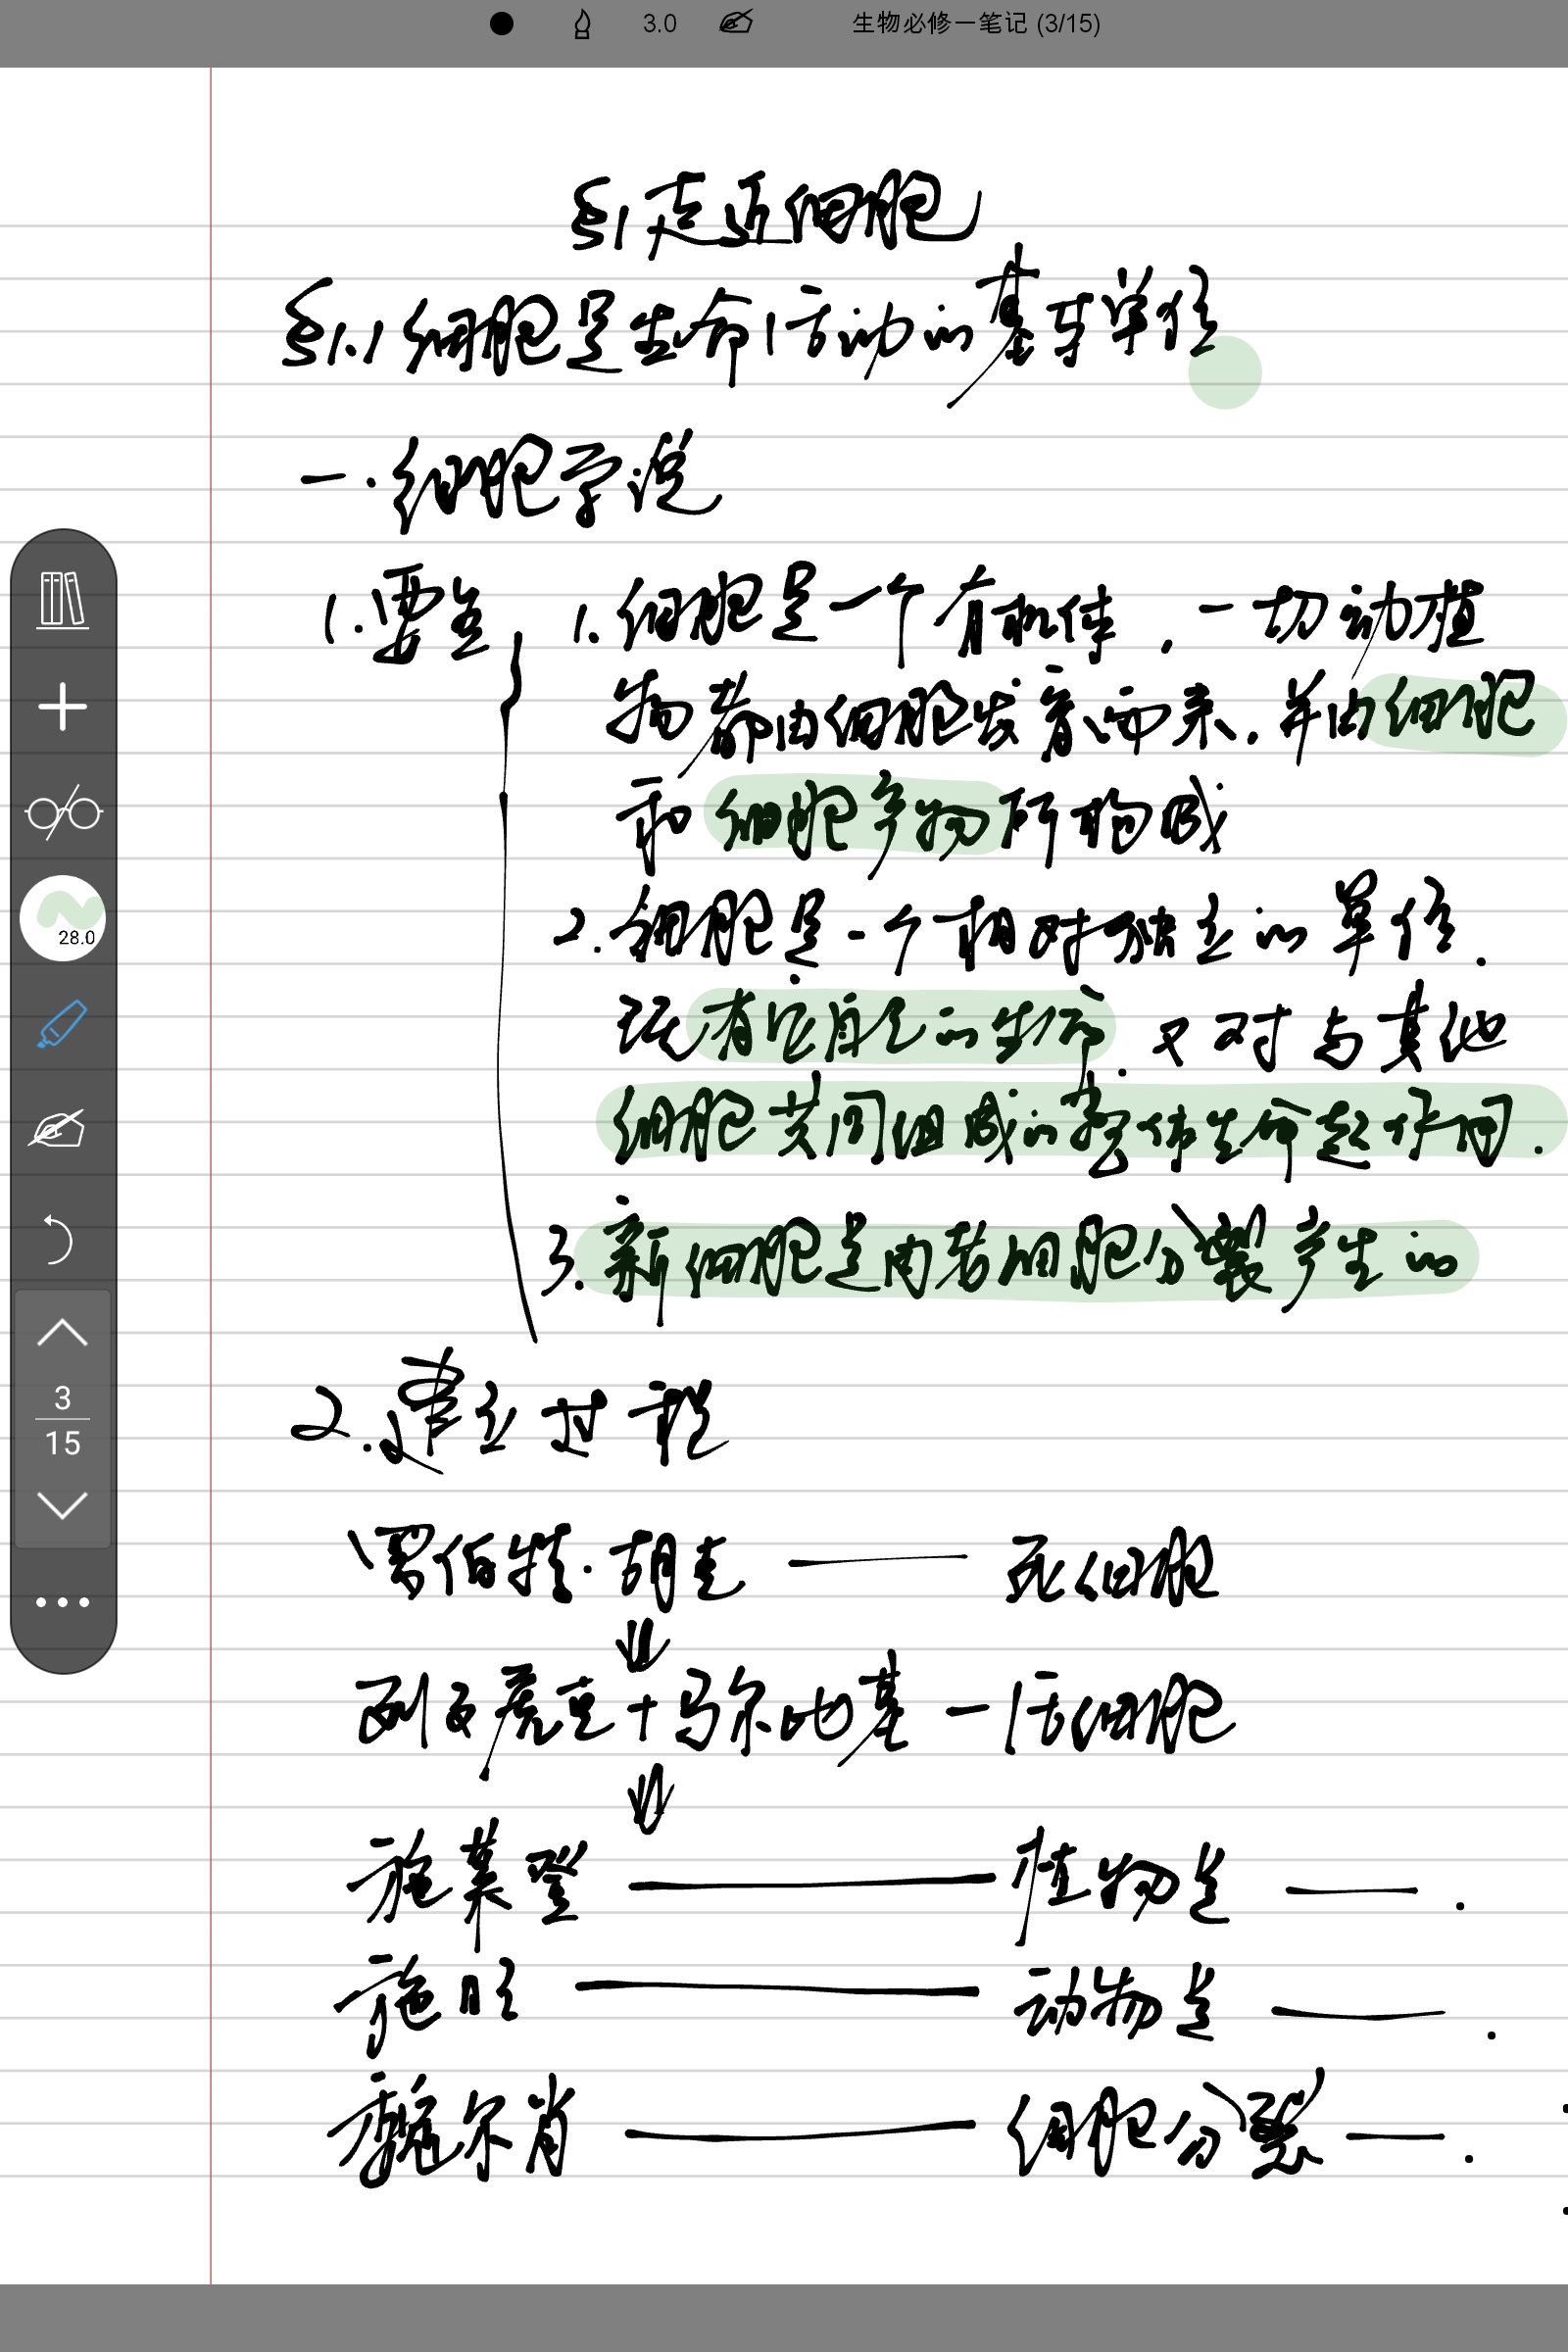 3.0 生物必修一笔记 (3/15)
§1 走近细胞
§1.1 细胞是生命活动的基本单位
一.细胞学说
1.要点 1.细胞是一个有机体，一切动植
物都由细胞发育而来.并由细胞
和细胞产物所构成
2.细胞是一个相对独立的单位.
既有它自己的生命.又对与其他
细胞共同组成的整体生命起作用.
3.新细胞是由老细胞分裂产生的
28.0
3
15
2.建立过程
罗伯特·胡克 —— 死细胞
列文虎克+马尔比基 — 活细胞
施莱登 —— 植物是 —.
施旺 —— 动物是 —.
魏尔肖 —— 细胞分裂 —.